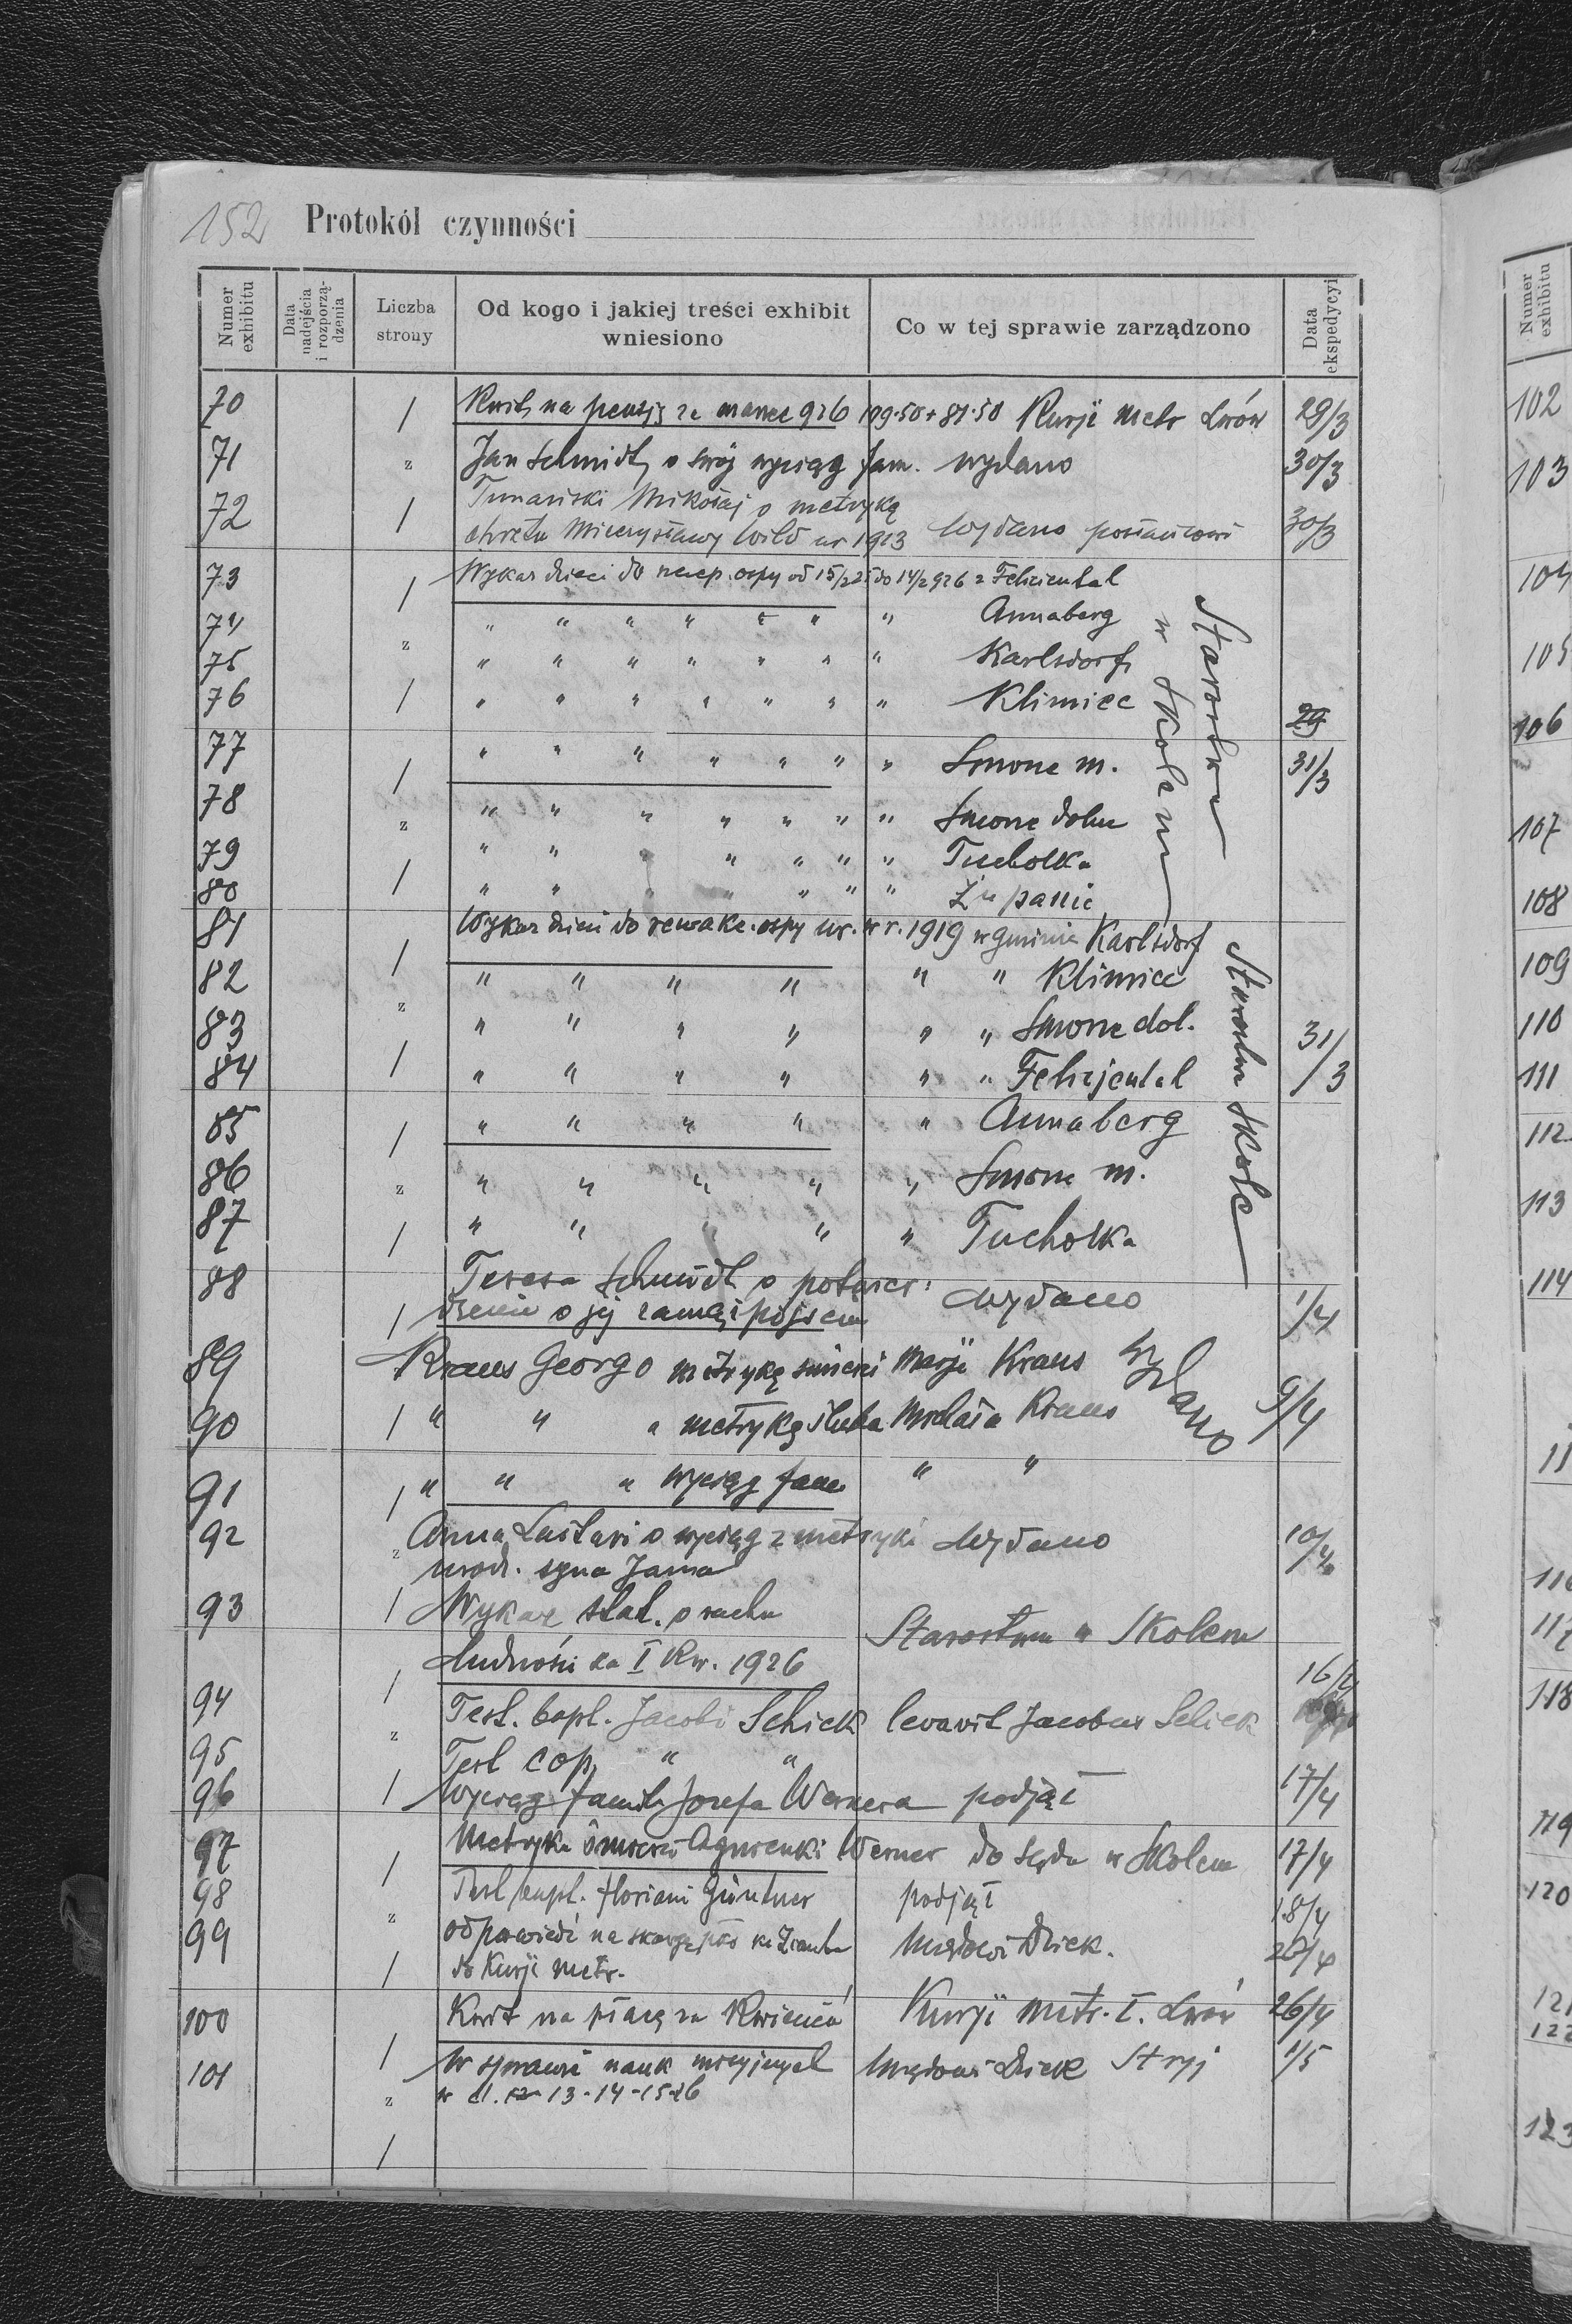 152 Protokół czynności
Numer exhibitu
Data nadejścia i rozporzą-dzenia
Liczba strony
Od kogo i jakiej treści exhibit wniesiono
Co w tej sprawie zarządzono
Data ekspedycyi
70 Kwit na pensję za marzec 926 199·50 + 81·50 Kurji metr Lwów 29/3
71 Jan Schmidt o swój wyciąg fam. wydano 30/3
72 Mikołaj o metrykę
chrztu wydano 30/3
73 Wykaz dzieci do ospy od 15/2 25 do 14/2 926 z Felizienthal
74 " " " " " " " Annaberg
75 " " " " " " " Karlsdorf
76 " " " " " " " Klimiec 29
77 " " " " " " " Smorze m. 31/3
78 " " " " " " " Smorze dolne
79 " " " " " " Tucholka
80 " " " " " " Żupanie
Starostwu w Skolem
81 Wykaz dzieci do rewakc. ospy ur. w r. 1919 w gminie Karlsdorf
82 " " " " " " Klimiec
83 " " " " " " Smorze dol. 31/3
84 " " " " " " Felizjental
85 " " " " " Annaberg
86 " " " " " Smorze m.
87 " " " " " Tucholka
Starostwu Skole
88 Teresa Schmidt o potwier:
dzenie o jej wydano 1/4
89 Kraus Georg o metrykę śmierci Marji Kraus wydano 9/4
90 " " " metrykę ślubu Kraus
91 " " " wyciąg fam " "
92 Anna o wyciąg z metryki wydano 10/4
urodz. syna Jana
93 Wykaz stat. o ruchu
Starostwu w Skolem
ludności za I Kw. 1926 16/4
94 Test. bapt. Jacobi Schick levavit Jacobus Schick
95 Test cop. " "
96 Wyciąg famil. Józefa Wernera podjął 17/4
97 Metryka śmierci Werner do sądu w Skolem 17/4
98 Test bapt. Floriani Güntner podjął 18/4
99 odpowiedź na skargę
do Kurji metr. Urzędowi Dziek. 20/4
100 Kwit na płacę za Kwiecień Kurji metr. ł. Lwów 26/4
101 W sprawie nauk misyjnych Urzędowi Dziek Stryj 1/5
w d. 12 13-14-15-26
Numer exhibitu
102
103
104
105
106
107
108
109
110
111
112
113
114
11
116
117
118
119
120
121
122
123